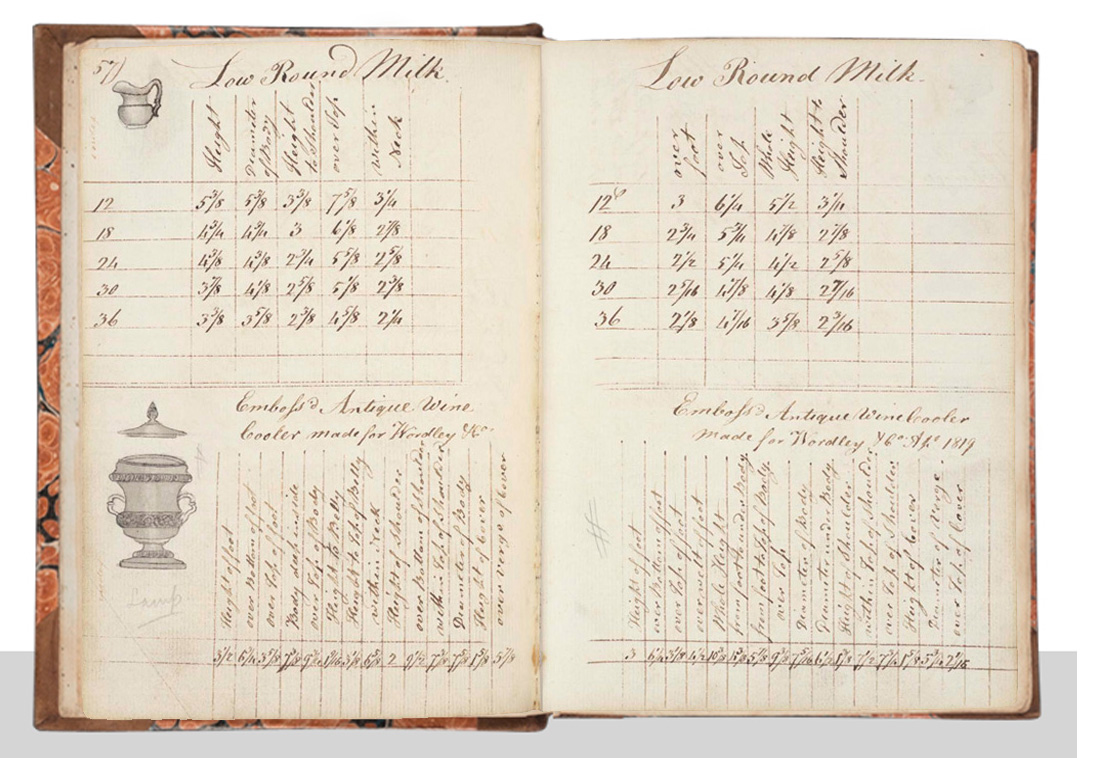 57)
Low Round Milk.
Height
Diameter of Body
Height to Shoulder
over Top
within Neck
12 5 3/8 5 3/8 3 3/8 7 5/8 3 1/4
18 4 3/4 4 3/4 3 6 1/8 2 7/8
24 4 3/8 4 3/8 2 3/4 5 5/8 2 5/8
30 3 7/8 4 1/8 2 5/8 5 1/8 2 3/8
36 3 3/8 3 5/8 2 3/8 4 5/8 2 1/4
Emboss'd Antique Wine
Cooler made for Wordley & Co.
Height of foot
over Bottom of foot
over Top of foot
Body deep inside
over Top of Body
Height to Belly
Height to Top of Belly
within Neck
Height of Shoulder
over Bottom of Shoulder
within Top of Shoulder
Diameter of Body
Height of Cover
over verge of Cover
Lamp
3 1/2
2
Low Round Milk.
over foot
over Top
Whole Height
Height to Shoulder
12 3 6 1/4 5 1/2 3 1/4
18 2 3/4 5 3/4 4 7/8 2 7/8
24 2 1/2 5 1/4 4 1/2 2 5/8
30 2 5/16 4 7/8 4 1/8 2 7/16
36 2 1/8 4 7/16 3 5/8 2 3/16
Emboss'd Antique Wine Cooler
made for Wordley & Co. Ap. 1819
Height of foot
over Bottom of foot
over Top of foot
over welt of foot
Whole Height
from foot to under Body
from foot to Top of Body
over Top
Diameter of Body
Diameter under Body
Height of Shoulder
within Top of Shoulder
over Top of Shoulder
Height of Cover
Diameter of verge
over Top of Cover
3